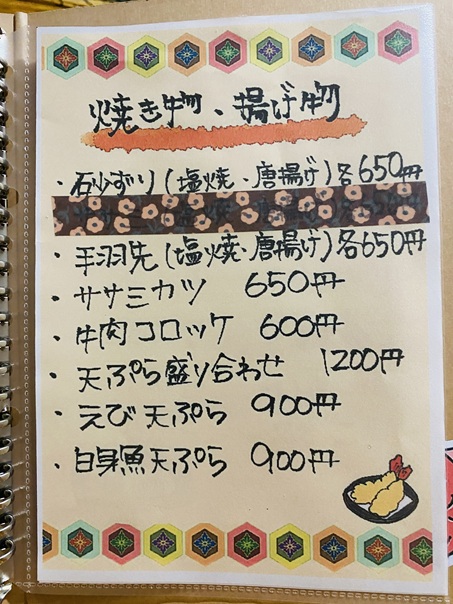 焼き物・揚げ物
・砂ずり(塩焼・唐揚げ)各650円
・手羽先(塩焼・唐揚げ)各650円
・ササミカツ 650円
・牛肉コロッケ 600円
・天ぷら盛り合わせ 1200円
・えび天ぷら 900円
・白身魚天ぷら 900円